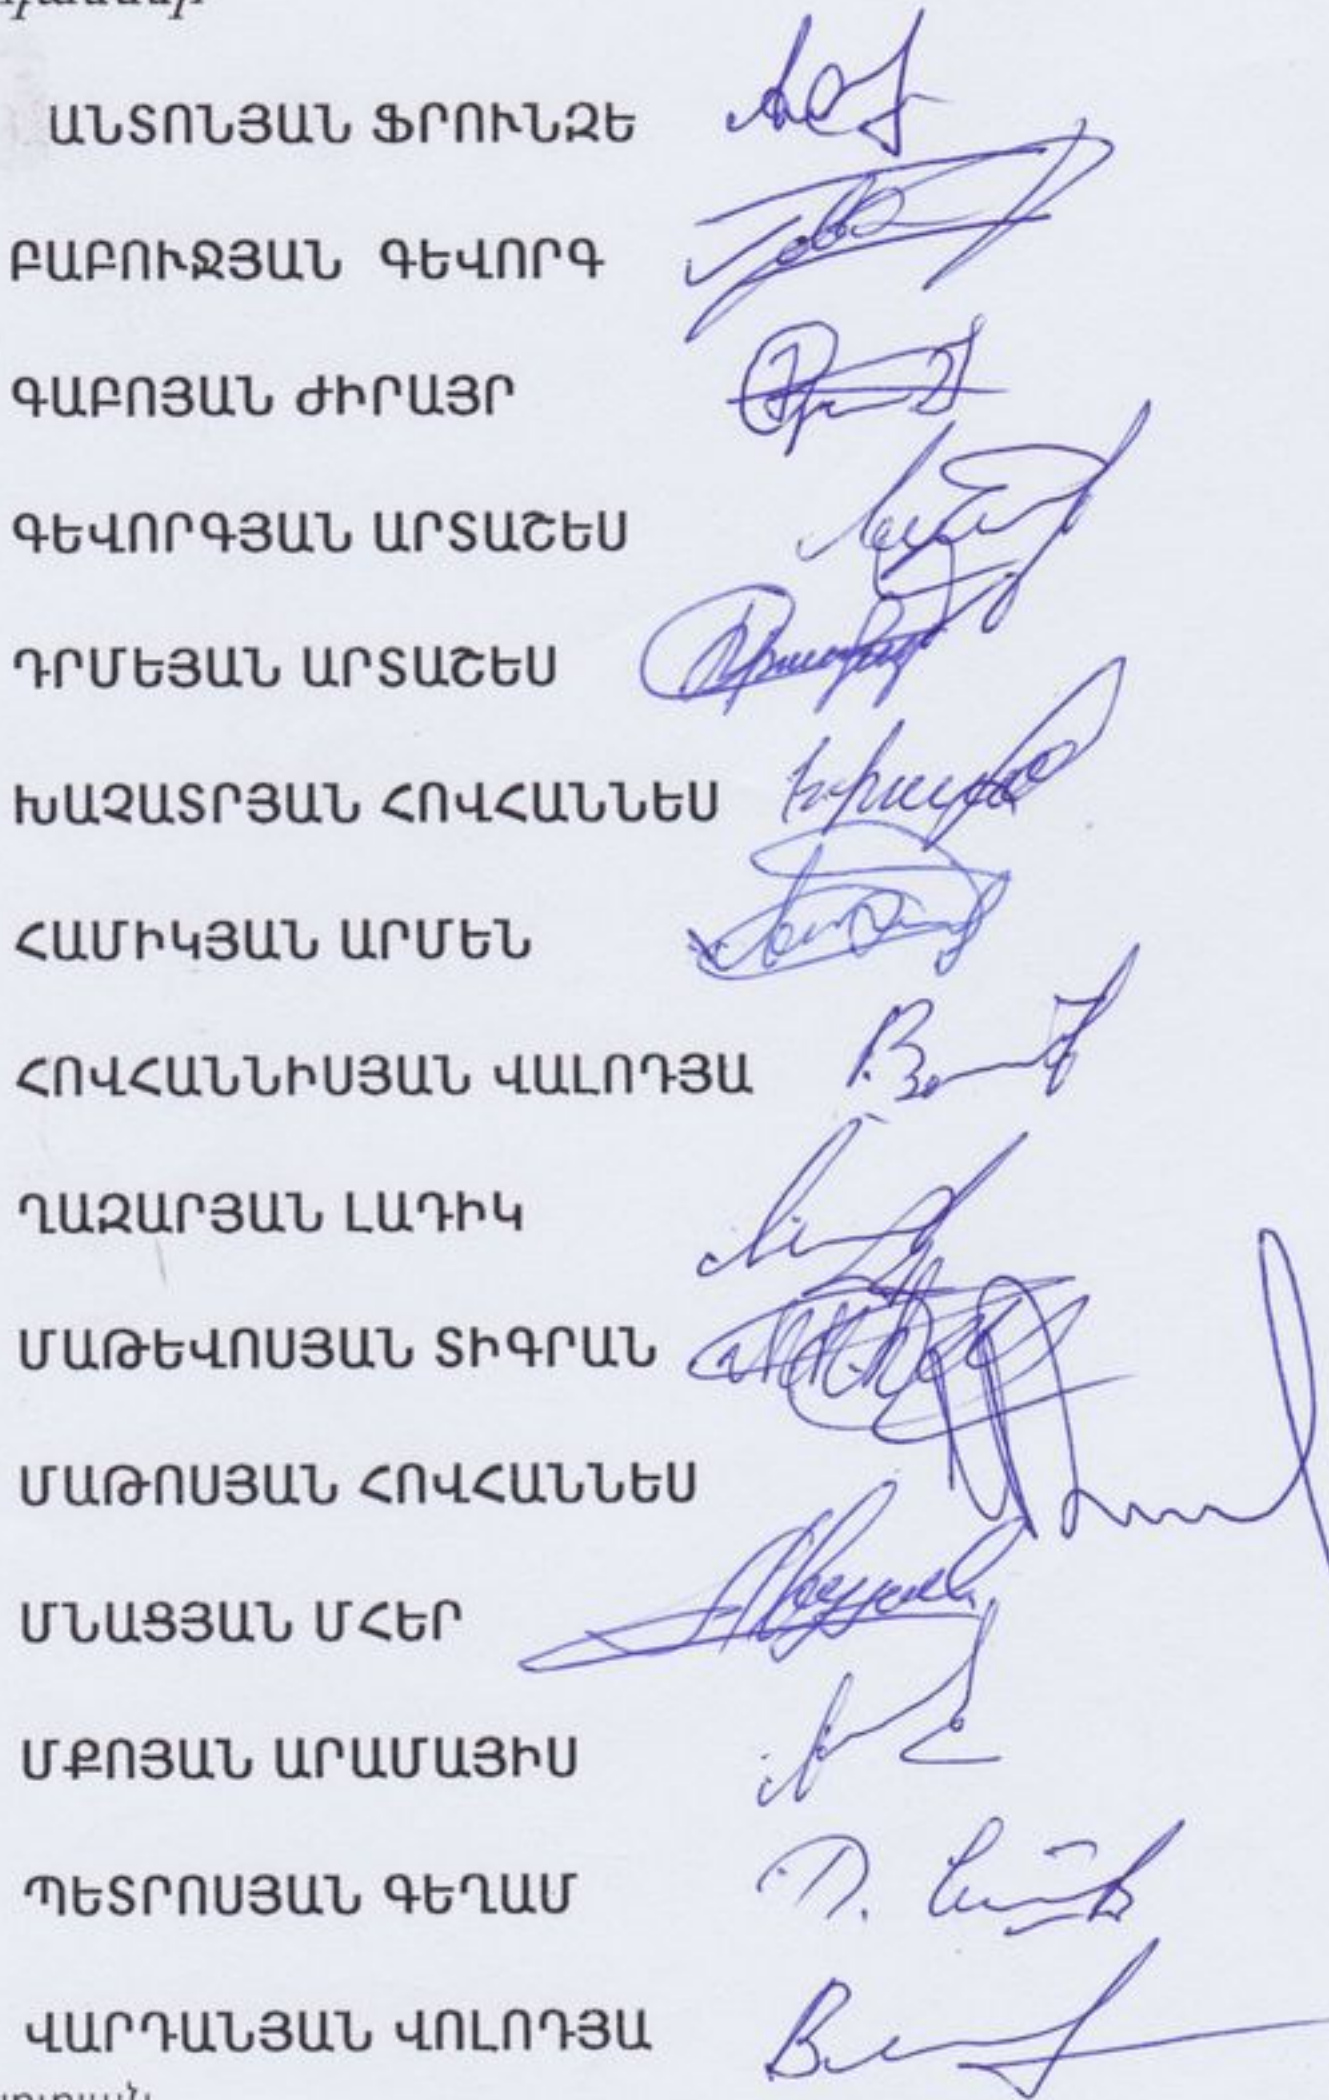 ԱՆՏՈՆՅԱՆ ՖՐՈՒՆԶԵ
ԲԱԲՈՒՋՅԱՆ ԳԵՎՈՐԳ
ԳԱԲՈՅԱՆ ԺԻՐԱՅՐ
ԳԵՎՈՐԳՅԱՆ ԱՐՏԱՇԵՍ
ԴՐՄԵՅԱՆ ԱՐՏԱՇԵՍ
ԽԱՉԱՏՐՅԱՆ ՀՈՎՀԱՆՆԵՍ
ՀԱՄԻԿՅԱՆ ԱՐՄԵՆ
ՀՈՎՀԱՆՆԻՍՅԱՆ ՎԱԼՈԴՅԱ
ՂԱԶԱՐՅԱՆ ԼԱԴԻԿ
ՄԱԹԵՎՈՍՅԱՆ ՏԻԳՐԱՆ
ՄԱԹՈՍՅԱՆ ՀՈՎՀԱՆՆԵՍ
ՄՆԱՑՅԱՆ ՄՀԵՐ
ՄՔՈՅԱՆ ԱՐԱՄԱՅԻՍ
ՊԵՏՐՈՍՅԱՆ ԳԵՂԱՄ
ՎԱՐԴԱՆՅԱՆ ՎՈԼՈԴՅԱ